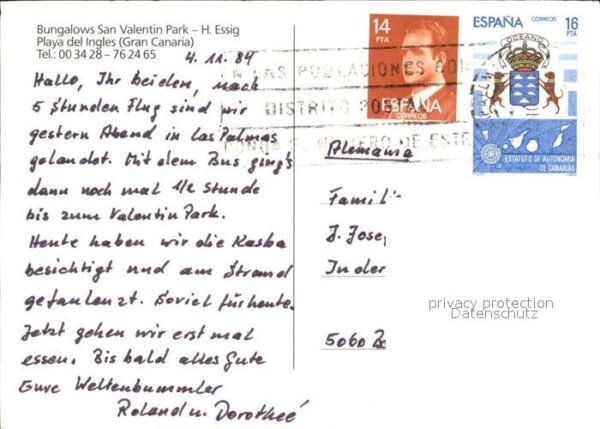 Bungalows San Valentin Park – H. Essig
Playa del Ingles (Gran Canaria)
Tel.: 00 34 28 – 76 24 65
4. 11. 84
Hallo, Ihr beiden, nach
5 Stunden Flug sind wir
gestern Abend in Las Palmas
gelandet. Mit dem Bus ging's
dann noch mal 1/2 Stunde
bis zum Valentin Park.
Heute haben wir die Kasba
besichtigt und am Strand
gefaulenzt. Soviel für heute.
Jetzt gehen wir erst mal
essen. Bis bald alles Gute
Eure Weltenbummler
Roland u. Dorotheé
14
PTA
ESPAÑA
CORREOS
ESPAÑA
CORREOS
16
PTA
OCEANO
ESTATUTO DE AUTONOMIA
DE CANARIAS
EN LAS POBLACIONES CON
DISTRITO POSTAL
DE
Alemania
Famili
J. Jose
In der
5060
privacy protection
Datenschutz